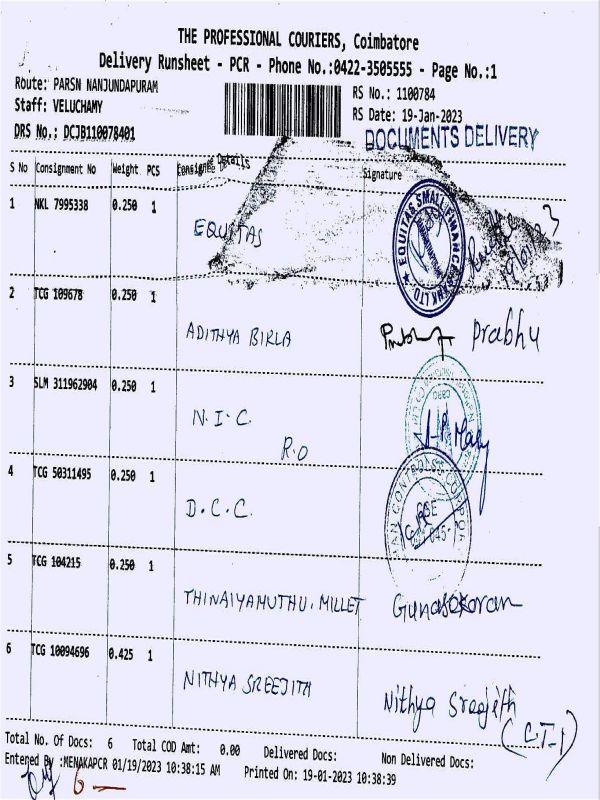 THE PROFESSIONAL COURIERS, Coimbatore
Delivery Runsheet - PCR - Phone No.:0422-3505555 - Page No.:1
Route: PARSN NANJUNDAPURAM
RS No.: 1100784
Staff: VELUCHAMY
RS Date: 19-Jan-2023
DRS No.: DCJB110078401
DOCUMENTS DELIVERY
S No Consignment No Weight PCS Consignee Details Signature
1 NKL 7995338 0.250 1 EQUITAS
EQUITAS SMALL FINANCE BANK LTD
2 TCG 109678 0.250 1 ADITHYA BIRLA Prabhu
3 SLM 311962904 0.250 1 N.I.C.
R.O
4 TCG 50311495 0.250 1 D.C.C.
5 TCG 104215 0.250 1 THINAIYAMUTHU.MILLET Gunasekaran
6 TCG 10094696 0.425 1 NITHYA SREEJITH Nithya Sreejith
Total No. Of Docs: 6 Total COD Amt: 0.00 Delivered Docs: Non Delivered Docs:
Entered By :MENAKAPCR 01/19/2023 10:38:15 AM Printed On: 19-01-2023 10:38:39
6